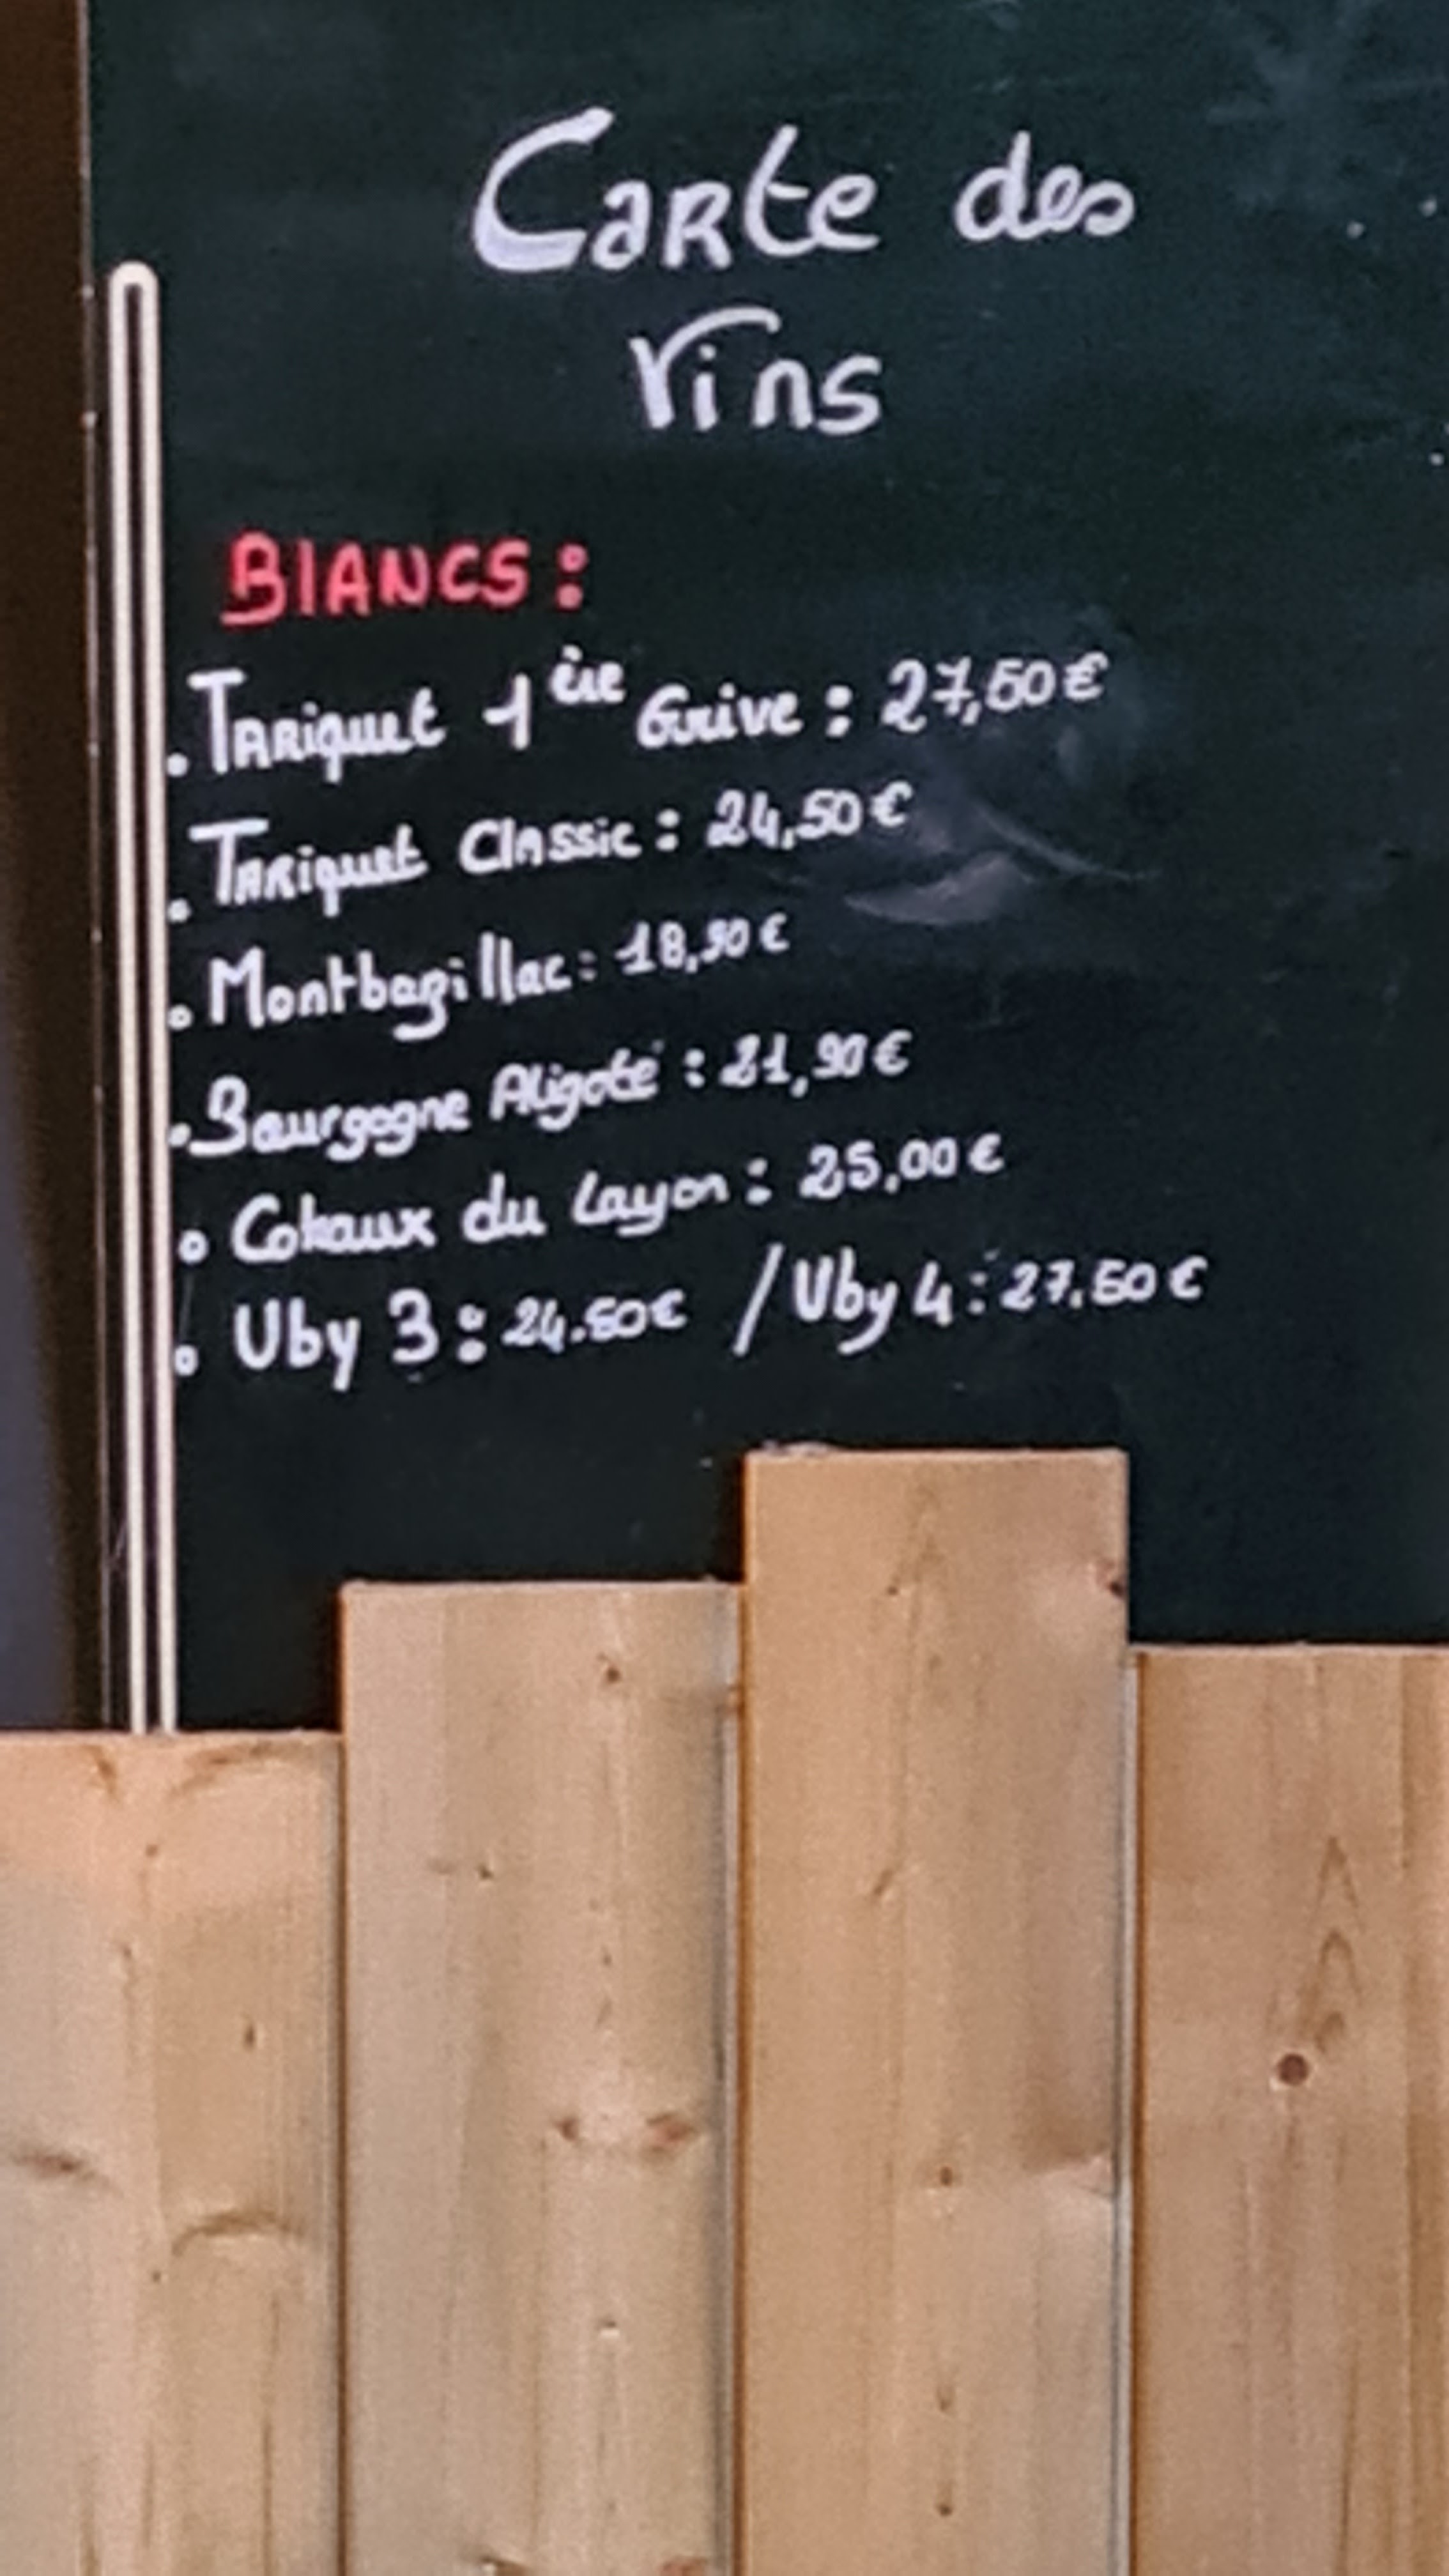 Carte des
Vins
BlANCS :
. Tariquet 1ère Grive : 27,50€
. Tariquet Classic : 24,50€
. Montbazillac : 18,90€
. Bourgogne Aligoté : 21,90€
. Coteaux du Layon : 25,00€
. Uby 3 : 24.50€ / Uby 4 : 27.50€